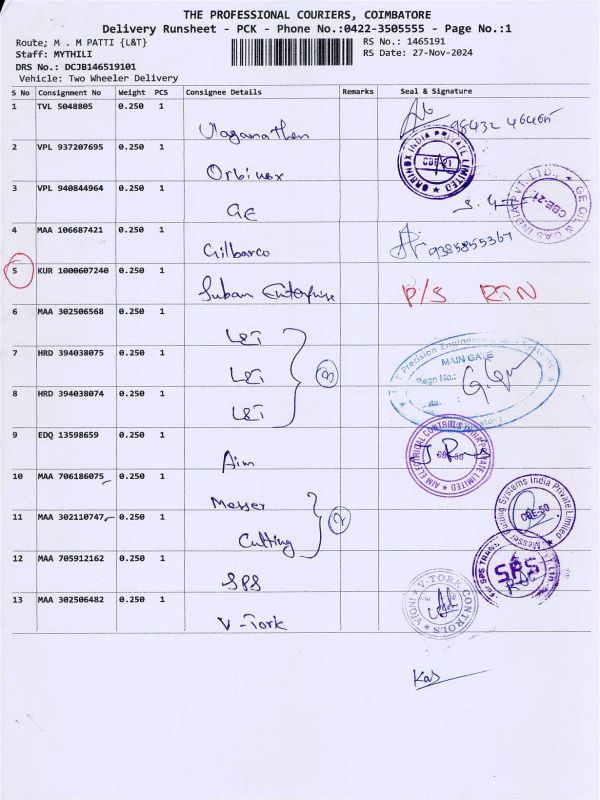 THE PROFESSIONAL COURIERS, COIMBATORE
Delivery Runsheet - PCK - Phone No.:0422-3505555 - Page No.:1
Route; M . M PATTI {L&T} RS No.: 1465191
Staff: MYTHILI RS Date: 27-Nov-2024
DRS No.: DCJB146519101
Vehicle: Two Wheeler Delivery
S No Consignment No Weight PCS Consignee Details Remarks Seal & Signature
1 TVL 5048805 0.250 1 98432 46465
2 VPL 937207695 0.250 1 Orbinox ORBINOX INDIA PRIVATE LIMITED CBE-21
3 VPL 940844964 0.250 1 GE GE OIL & GAS INDIA PVT. LTD. CBE-21.
4 MAA 106687421 0.250 1 Gilbarco 9385855367
5 KUR 1000607240 0.250 1 Suban Enterprise P/S RTN
6 MAA 302506568 0.250 1 L&T
7 HRD 394038075 0.250 1 L&T 3 Precision Engineering MAIN GATE Regn No.:
8 HRD 394038074 0.250 1 L&T Date:
9 EDQ 13598659 0.250 1 Aim AIM ELECTRICAL CONTROLS INDIA PRIVATE LIMITED CBE-50
10 MAA 706186075 0.250 1 Messer
11 MAA 302110747 0.250 1 Cutting 2 Messer Cutting Systems India Private Limited CBE-50
12 MAA 705912162 0.250 1 SPS For SPS TRANS SPS
13 MAA 302506482 0.250 1 V-Tork V-TORK CONTROLS